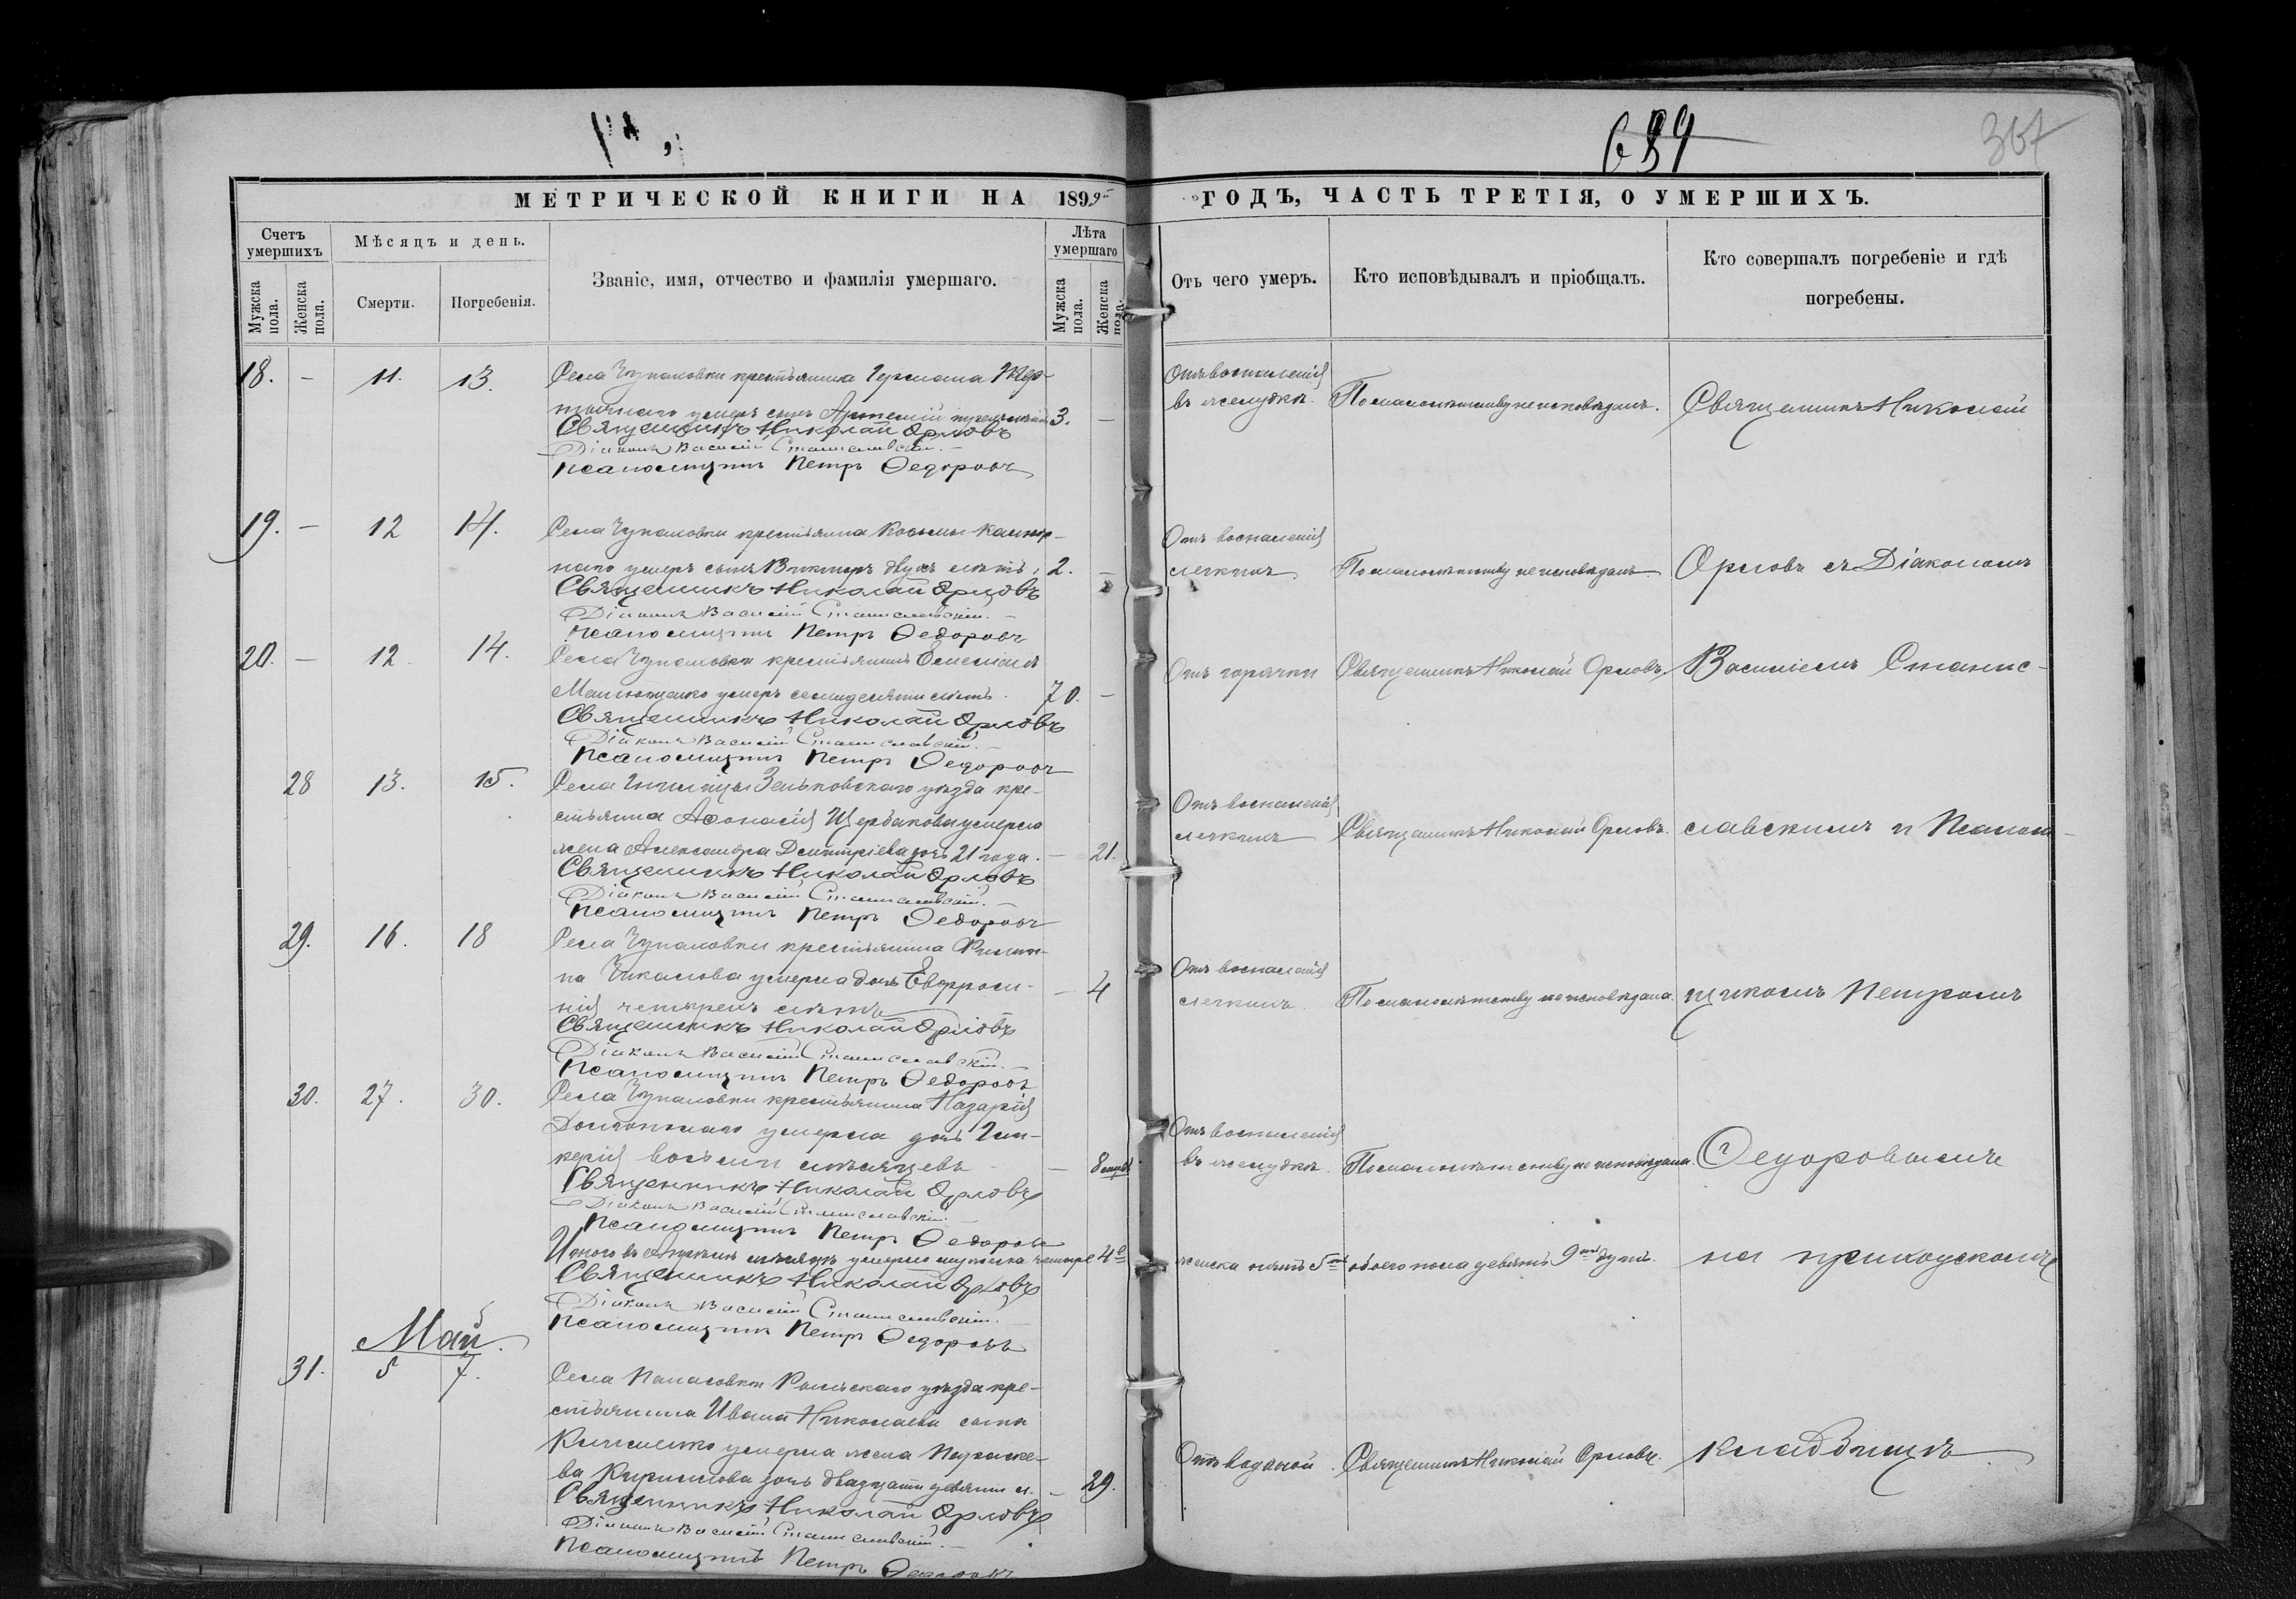 639
367
МЕТРИЧЕСКОЙ КНИГИ НА 1895
ГОДЪ, ЧАСТЬ ТРЕТІЯ, О УМЕРШИХЪ.
Счетъ умершихъ
Мужска пола.
Женска пола.
Мѣсяцъ и день.
Смерти.
Погребенія.
Званіе, имя, отчество и фамилія умершаго.
Лѣта умершаго
Мужска пола.
Женска пола.
Отъ чего умеръ.
Кто исповѣдывалъ и пріобщалъ.
Кто совершалъ погребеніе и гдѣ
погребены.
18. – 11. 13.
Села Чупаховки крестьянина Германа
умеръ сынъ Артемій 3. –
Священникъ Николай Орловъ
Діаконъ Василій Станиславскій.
Псаломщикъ Петръ Федоровъ
Отъ воспаленія
въ желудкѣ.
По малолѣтству не исповѣданъ.
Священникъ Николай
19. – 12 14.
Села Чупаховки крестьянина Косьмы
умеръ сынъ Викторъ двухъ лѣтъ, 2. –
Священникъ Николай Орловъ
Діаконъ Василій Станиславскій.
Псаломщикъ Петръ Федоровъ
Отъ воспаленія
легкихъ.
По малолѣтству не исповѣданъ.
Орловъ съ Діакономъ
20. – 12. 14.
Села Чупаховки крестьянинъ
умеръ семидесяти лѣтъ. 70. –
Священникъ Николай Орловъ
Діаконъ Василій Станиславскій.
Псаломщикъ Петръ Федоровъ
Отъ горячки
Священникъ Николай Орловъ.
Василіемъ Станис-
28 13. 15.
Села Зеньковскаго уѣзда кре-
стьянина Афонасія Щербакова умерла
жена Александра Димитріева дочь 21 года. – 21.
Священникъ Николай Орловъ
Діаконъ Василій Станиславскій.
Псаломщикъ Петръ Федоровъ
Отъ воспаленія
легкихъ
Священникъ Николай Орловъ.
славскимъ и Псалом-
29. 16. 18
Села Чупаховки крестьянина Филип-
па Чикалова умерла дочь Евфроси-
нія четырехъ лѣтъ – 4
Священникъ Николай Орловъ
Діаконъ Василій Станиславскій.
Псаломщикъ Петръ Федоровъ
Отъ воспаленія
легкихъ.
По малолѣтству не исповѣдана.
щикомъ Петромъ
30. 27. 30.
Села Чупаховки крестьянина Назарія
умерла дочь Гли-
керія восьми мѣсяцевъ – 8 мѣсяц.
Священникъ Николай Орловъ
Діаконъ Василій Станиславскій.
Псаломщикъ Петръ Федоровъ
Отъ воспаленія
въ желудкѣ.
По малолѣтству не исповѣдана.
Федоровымъ
Итого въ Апрѣлѣ мѣсяцѣ умерло мужеска четыре 4е
женска пять 5ть обоего пола девять 9ть душъ.
на приходскомъ
Священникъ Николай Орловъ
Діаконъ Василій Станиславскій.
Псаломщикъ Петръ Федоровъ
Май.
31. 5 7.
Села уѣзда кре-
стьянина Ивана Николаева сына
умерла жена Параске-
ва Кириллова дочь двадцати девяти л. – 29.
Священникъ Николай Орловъ
Діаконъ Василій Станиславскій.
Псаломщикъ Петръ Федоровъ
Отъ водяной.
Священникъ Николай Орловъ.
кладбищѣ